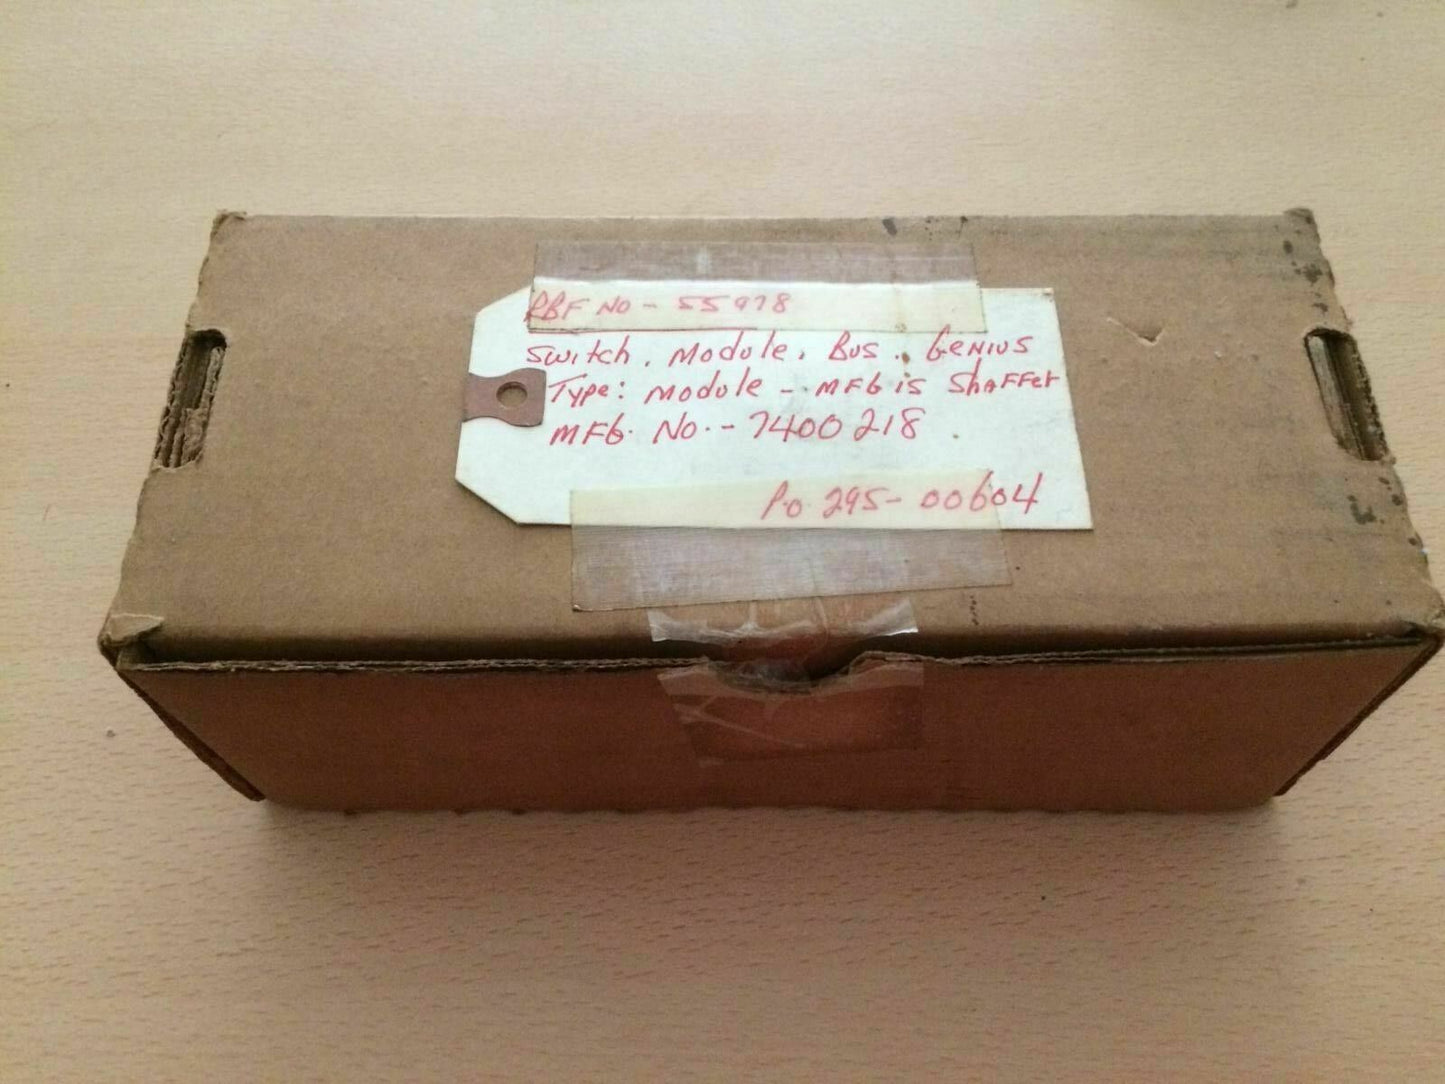 RBF NO - 55978
Switch. Module. Bus. Genius
Type: Module - MFG is Shaffer
MFG. No. - 7400218
P.O 295-00604